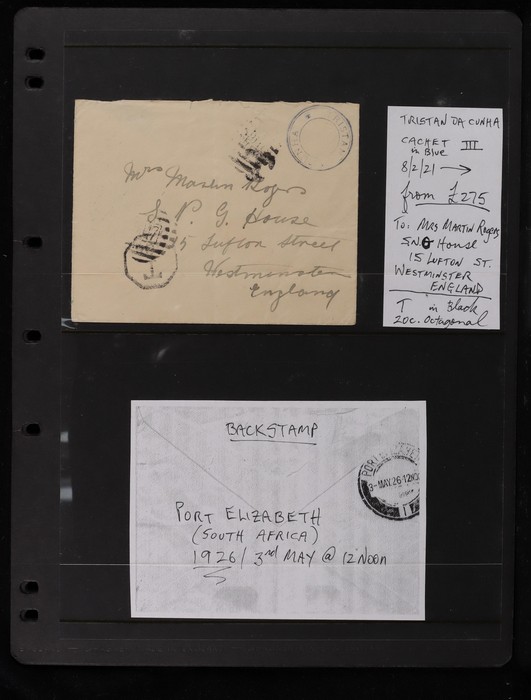 TRISTAN
Mrs Martin Rogers
S. P. G. House
15 Lufton Street
Westminster
England
T
TRISTAN DA CUNHA
CACHET III
in Blue
8/2/21 →
from £275
To: MRS MARTIN ROGERS
S.N.G HOUSE
15 LUFTON ST.
WESTMINSTER
ENGLAND
T in Black
20c. Octagonal
BACKSTAMP
3-MAY 26-12NO
PORT ELIZABETH
(SOUTH AFRICA)
1926/ 3rd MAY @ 12 NOON